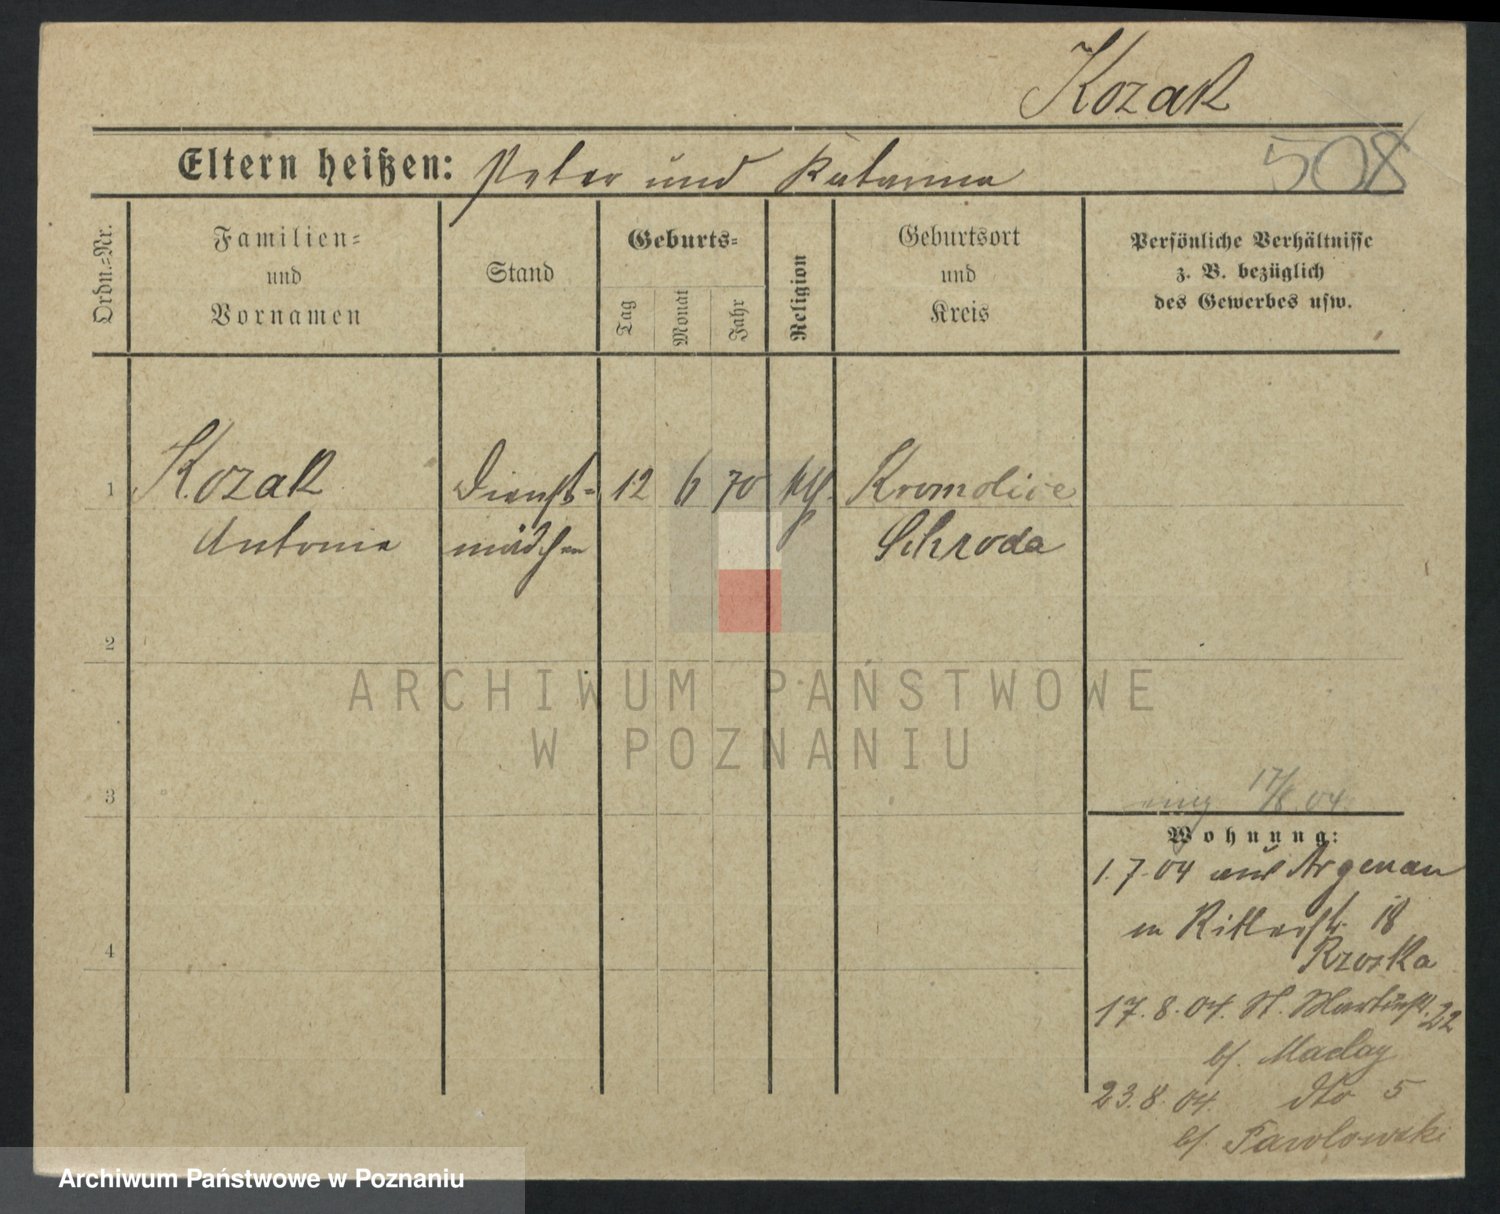 Kozak
508
Eltern heißen: Peter und Katarina
Ordn.=Nr.
Familien=
und
Vornamen
Stand
Geburts=
Tag
Monat
Jahr
Religion
Geburtsort
und
Kreis
Persönliche Verhältnisse
z. B. bezüglich
des Gewerbes usw.
1
Kozak
Antonie
Dienst=
mädchen
12
6
70
kth.
Kromolice
Schroda
2
3
4
17/8.04.
Wohnung:
1.7.04 aus Argenau
Ritterstr. 18
Rzoska
17.8.04. St. Martinstr. 22
b/. Maclay
23.8.04. dto 5
b/. Pawlowski
ARCHIWUM PAŃSTWOWE
W POZNANIU
Archiwum Państwowe w Poznaniu